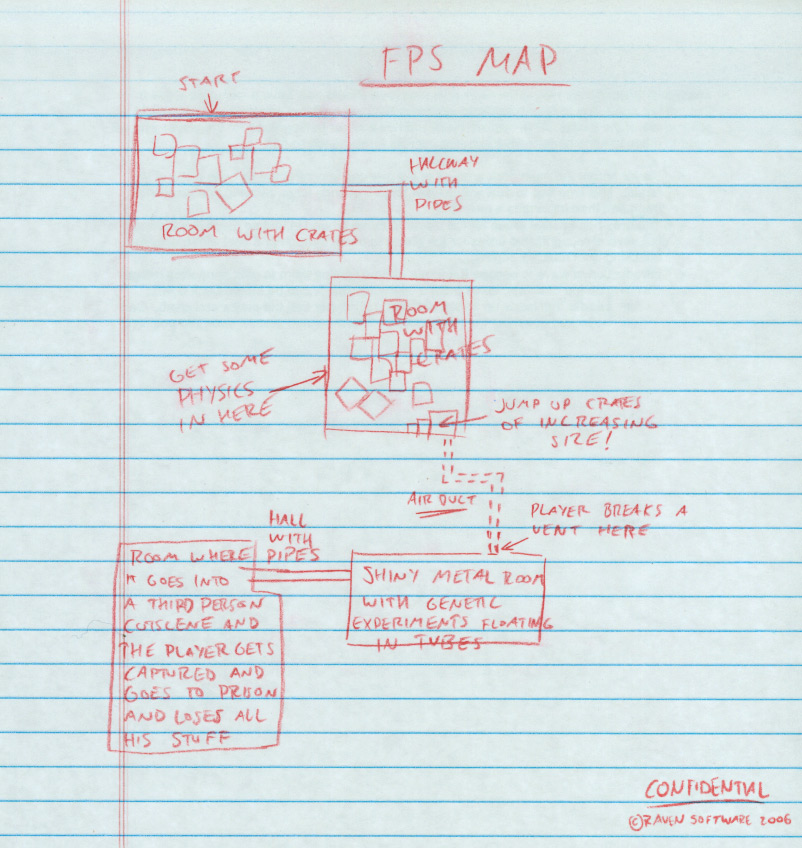 FPS MAP
START
ROOM WITH CRATES
HALLWAY
WITH
PIPES
ROOM
WITH
CRATES
GET SOME
PHYSICS
IN HERE
JUMP UP CRATES
OF INCREASING
SIZE!
AIR DUCT
PLAYER BREAKS A
VENT HERE
HALL
WITH
PIPES
SHINY METAL ROOM
WITH GENETIC
EXPERIMENTS FLOATING
IN TUBES
ROOM WHERE
IT GOES INTO
A THIRD PERSON
CUTSCENE AND
THE PLAYER GETS
CAPTURED AND
GOES TO PRISON
AND LOSES ALL
HIS STUFF
CONFIDENTIAL
©RAVEN SOFTWARE 2006